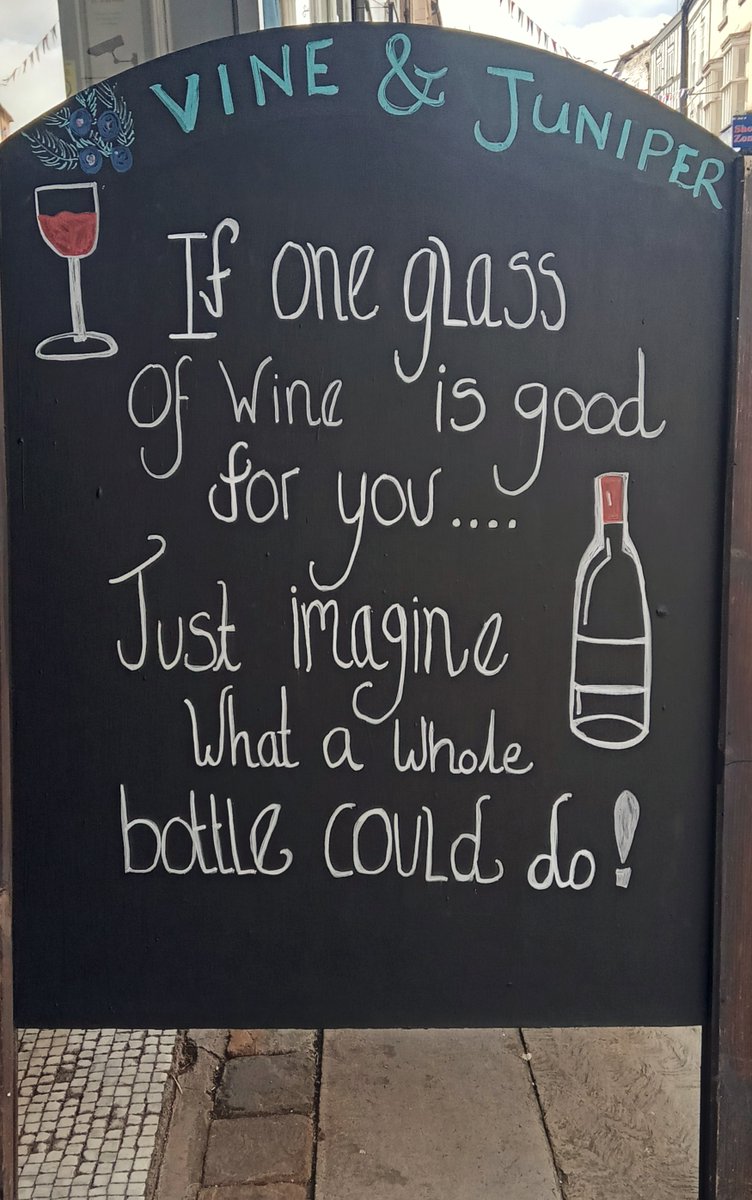 VINE & JUNIPER
If one glass
of Wine is good
for you....
Just imagine
What a whole
bottle could do!